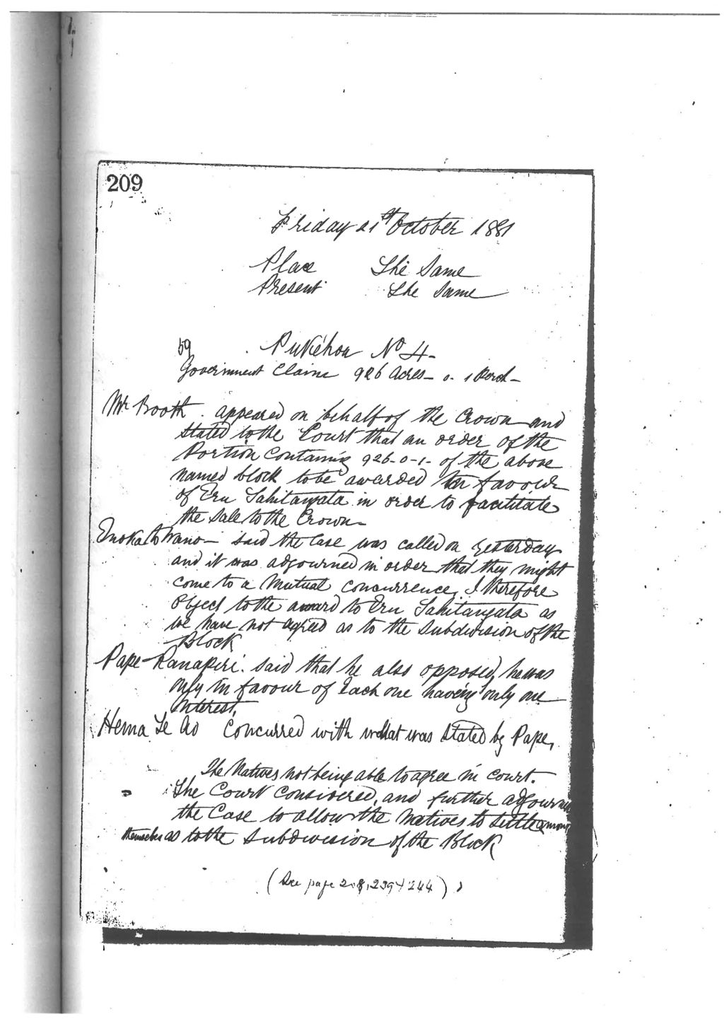 209
Friday 21st October 1881
Place The Same
Present The Same
59 Pukehou No 4
Government Claim 926 Acres - 0 - 1 Perch
Mr Booth. appeared on behalf of the Crown and
stated to the Court that an order of the
Portion Containing 926-0-1- of the above
named block to be awarded in favour
of Eru Tahitangata in order to facilitate
the Sale to the Crown
Enoka te Wano - said the Case was called on yesterday
and it was adjourned in order that they might
come to a Mutual concurrence, I therefore
Object to the award to Eru Tahitangata as
we have not agreed as to the Subdivision of the
Block
Pape Ranapiri. said that he also opposed, he was
only in favour of each one having only one
interest,
Hema Te Ao Concurred with what was stated by Pape,
The Natives not being able to agree in court.
The Court Considered, and further adjourned
the Case to allow the Natives to settle among
themselves as to the Subdivision of the Block
(See page 208, 239 & 244)